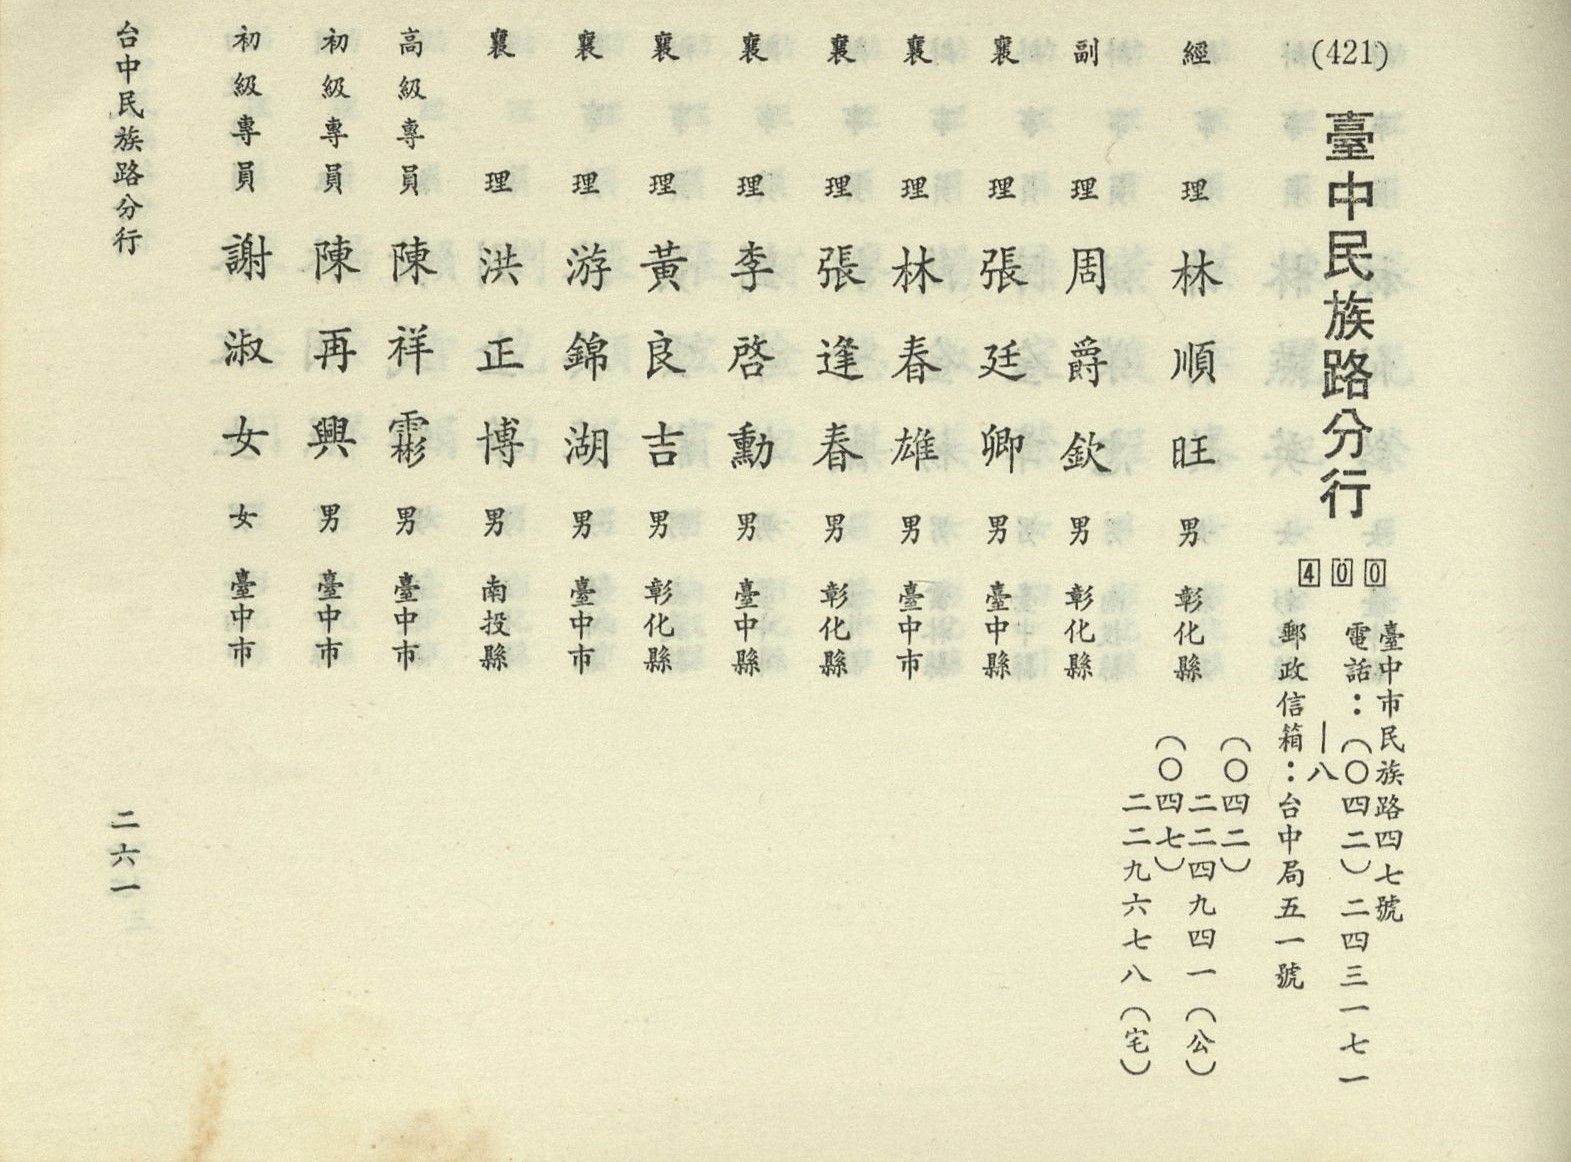 (421)
臺中民族路分行
400
臺中市民族路四七號
電話：(〇四二)二四三一七一
—八
郵政信箱：台中局五一號
經理 林順旺 男 彰化縣
(〇四二)
二二四九四一(公)
(〇四七)
二二九六七八(宅)
副理 周爵欽 男 彰化縣
襄理 張廷卿 男 臺中縣
襄理 林春雄 男 臺中市
襄理 張逢春 男 彰化縣
襄理 李啓勳 男 臺中縣
襄理 黃良吉 男 彰化縣
襄理 游錦湖 男 臺中市
襄理 洪正博 男 南投縣
高級專員 陳祥霦 男 臺中市
初級專員 陳再興 男 臺中市
初級專員 謝淑女 女 臺中市
台中民族路分行
二六一